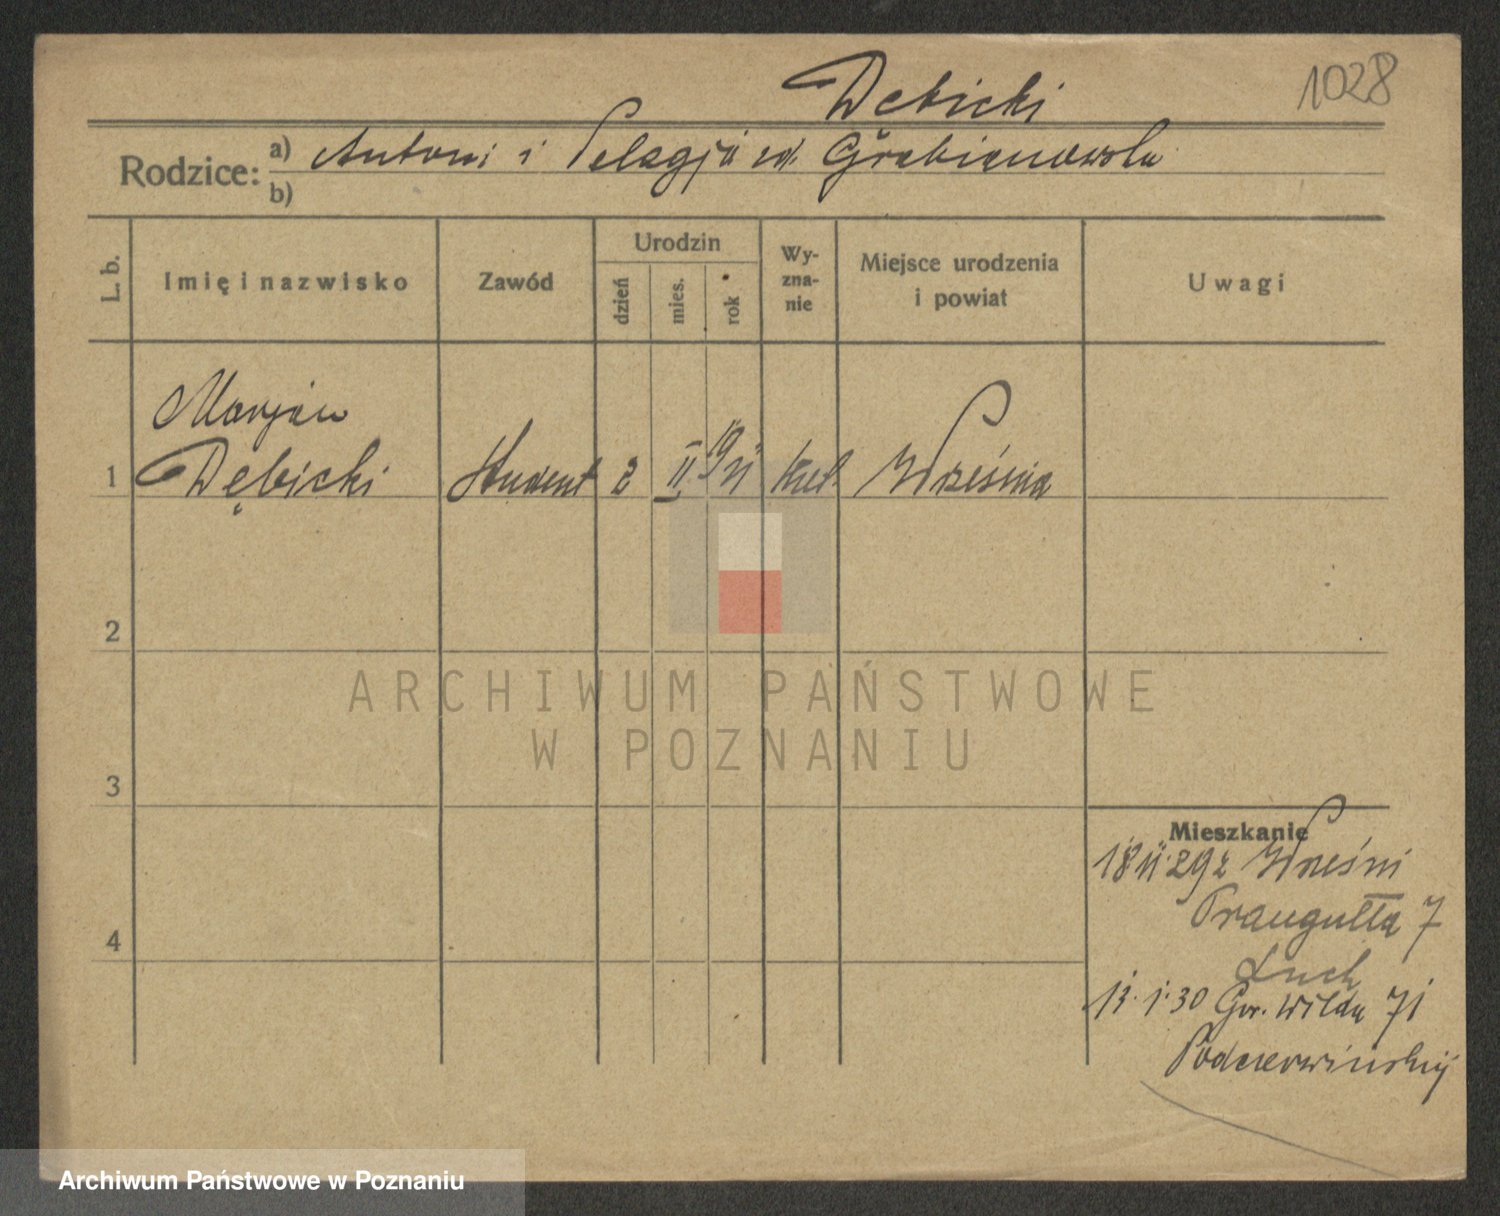 Dębicki
1028
Rodzice: a) Antoni i Pelagja zd. Grabianowska
b)
L. b.
Imię i nazwisko
Zawód
Urodzin
dzień
mies.
rok
Wy-
zna-
nie
Miejsce urodzenia
i powiat
Uwagi
Marjan
1 Dębicki student 2 II Kat. Września
2
3
4
ARCHIWUM PAŃSTWOWE
W POZNANIU
Mieszkanie
18 II 29 z Wrześni
Traugutta 7
13. 1. 30 Gór. Wilda 71
Archiwum Państwowe w Poznaniu